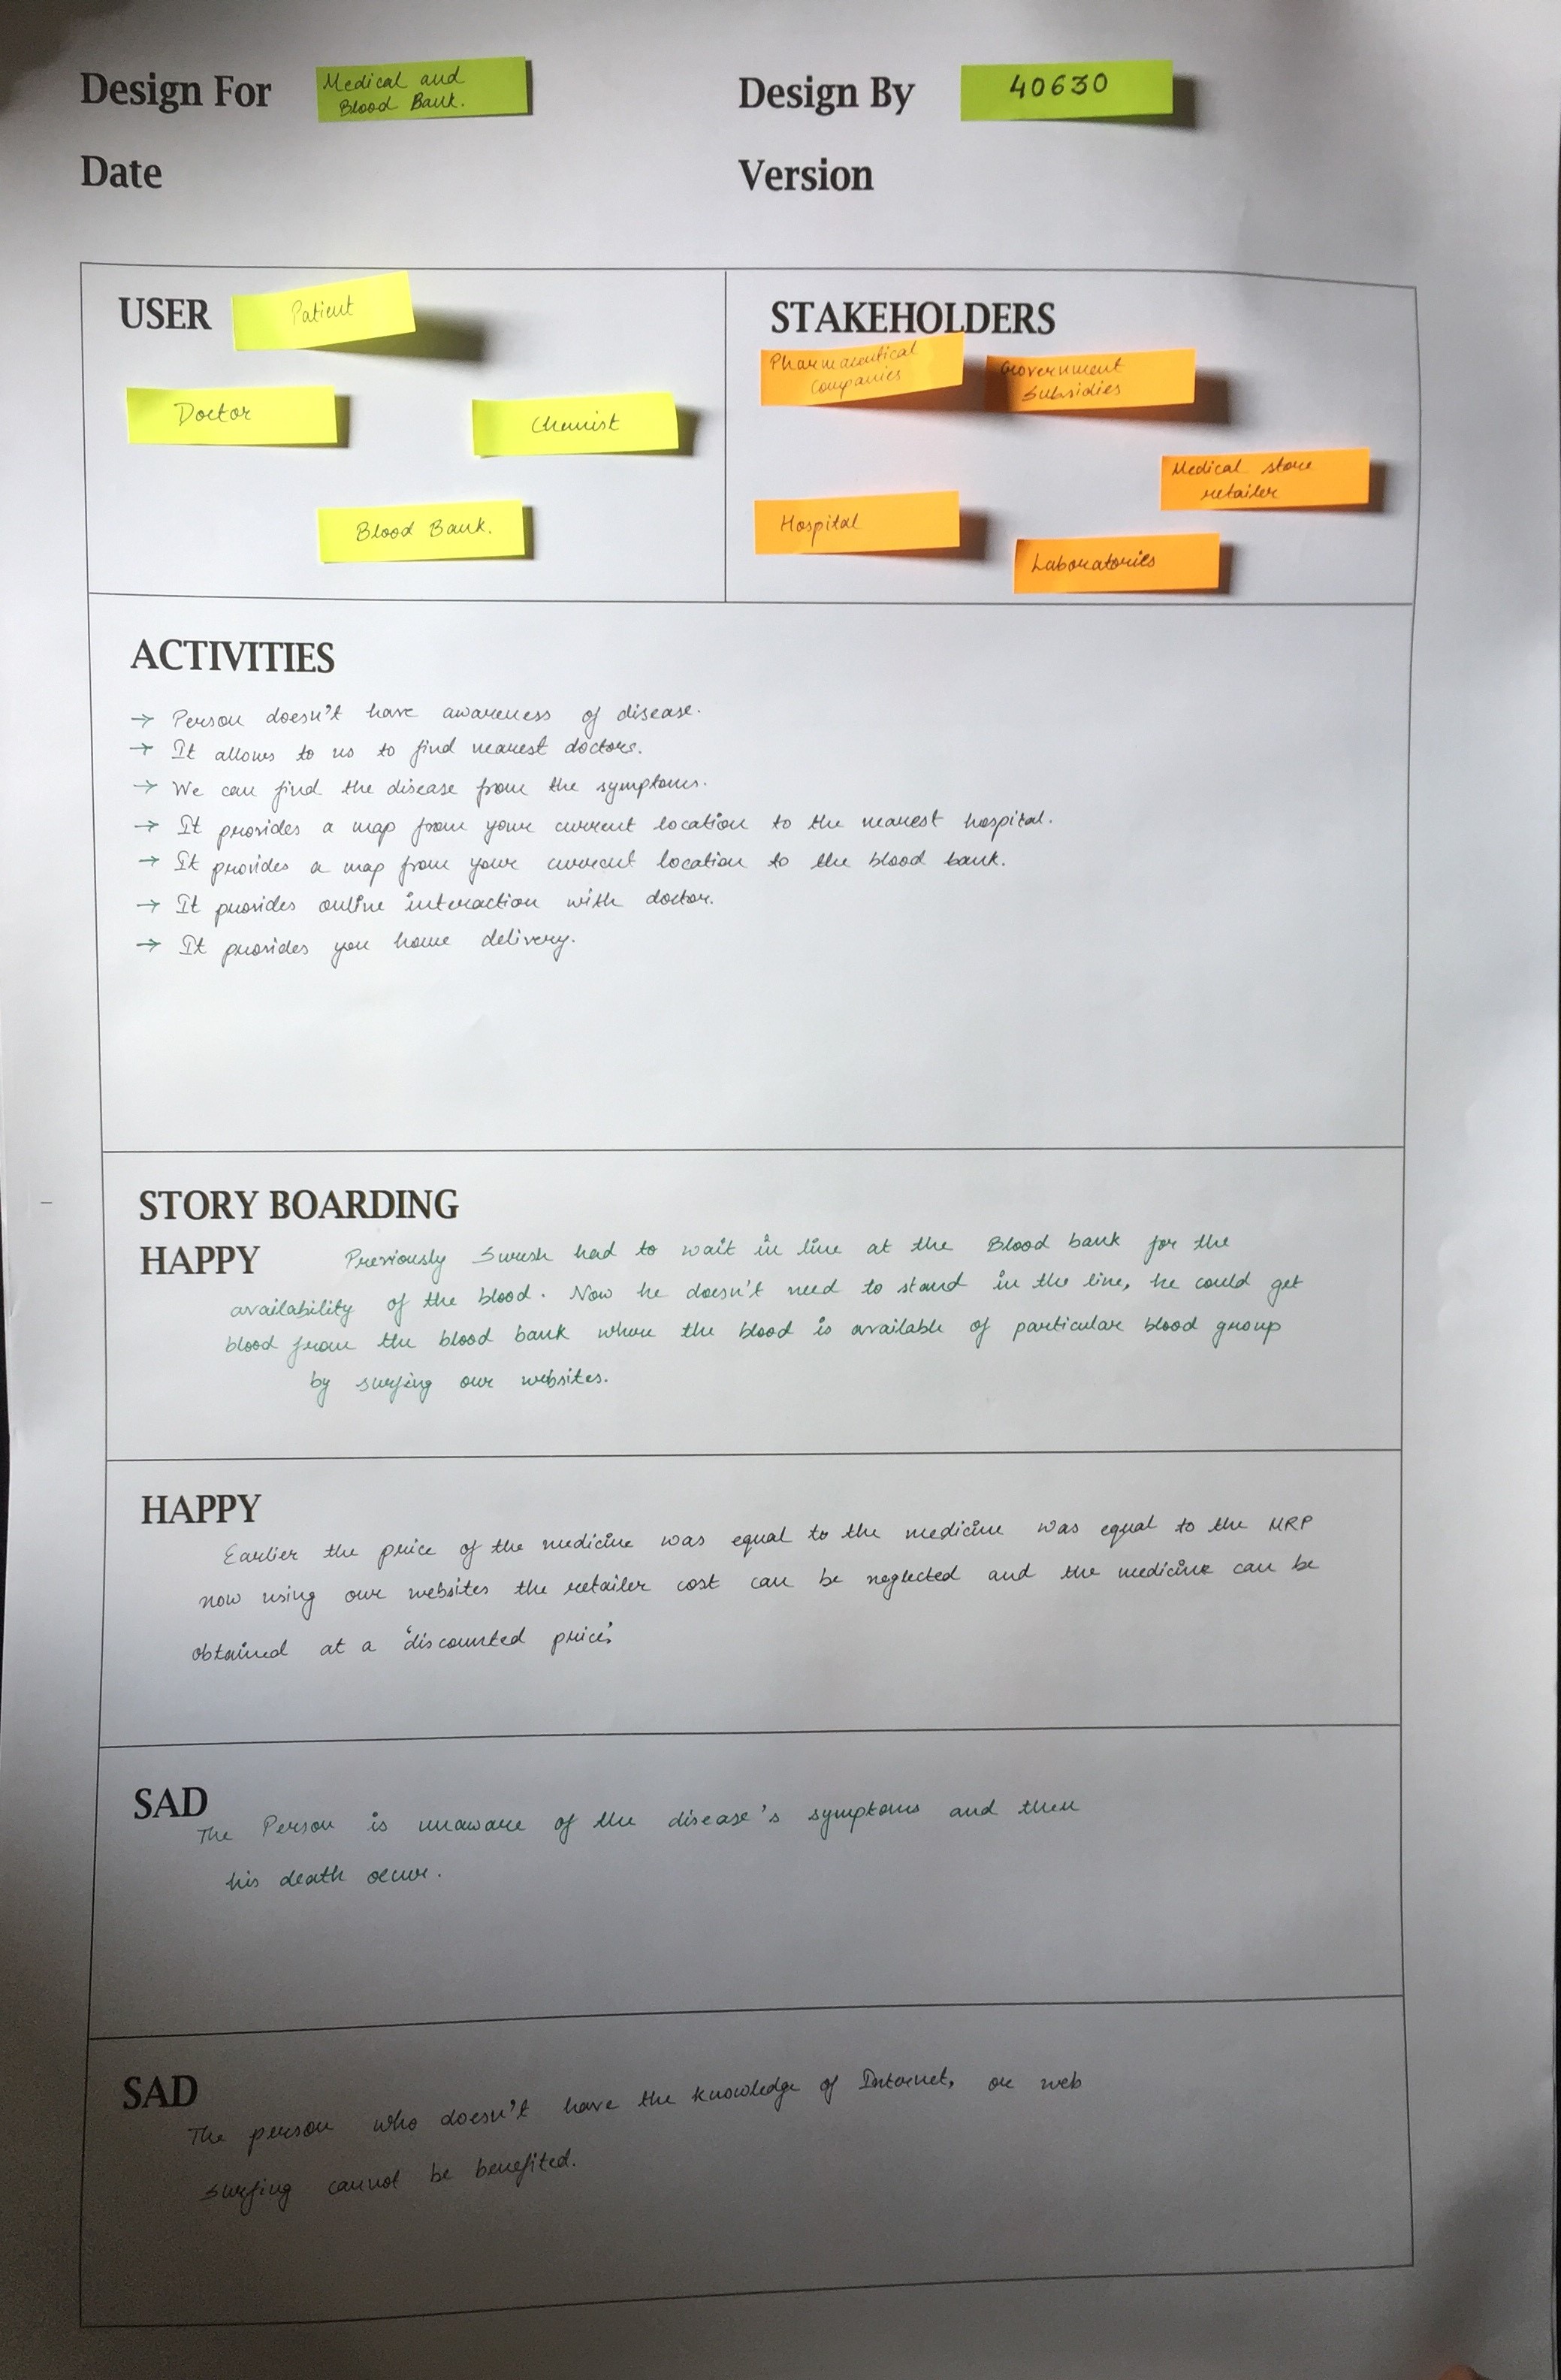 Design For
Medical and
Blood Bank.
Design By
40630
Date
Version
USER
Patient
Doctor
Chemist
Blood Bank.
STAKEHOLDERS
Pharmaceutical
Companies
Government
Subsidies
Medical store
retailer
Hospital
Laboratories
ACTIVITIES
→ Person doesn't have awareness of disease.
→ It allows to us to find nearest doctors.
→ We can find the disease from the symptoms.
→ It provides a map from your current location to the nearest hospital.
→ It provides a map from your current location to the blood bank.
→ It provides online interaction with doctor.
→ It provides you home delivery.
STORY BOARDING
HAPPY
Previously had to wait in line at the Blood bank for the
availability of the blood. Now he doesn't need to stand in the line, he could get
blood from the blood bank where the blood is available of particular blood group
by surfing our websites.
HAPPY
Earlier the price of the medicine was equal to the medicine was equal to the MRP
now using our websites the retailer cost can be neglected and the medicine can be
obtained at a 'discounted price'.
SAD
The Person is unaware of the disease's symptoms and then
his death occur.
SAD
The person who doesn't have the knowledge of Internet, or web
surfing cannot be benefited.